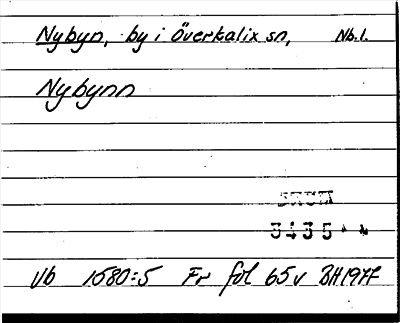 Nybyn, by i Överkalix sn, Nb.l.
Nybynn
3435
Vb 1580:5 Fr fol 65v BH 1977